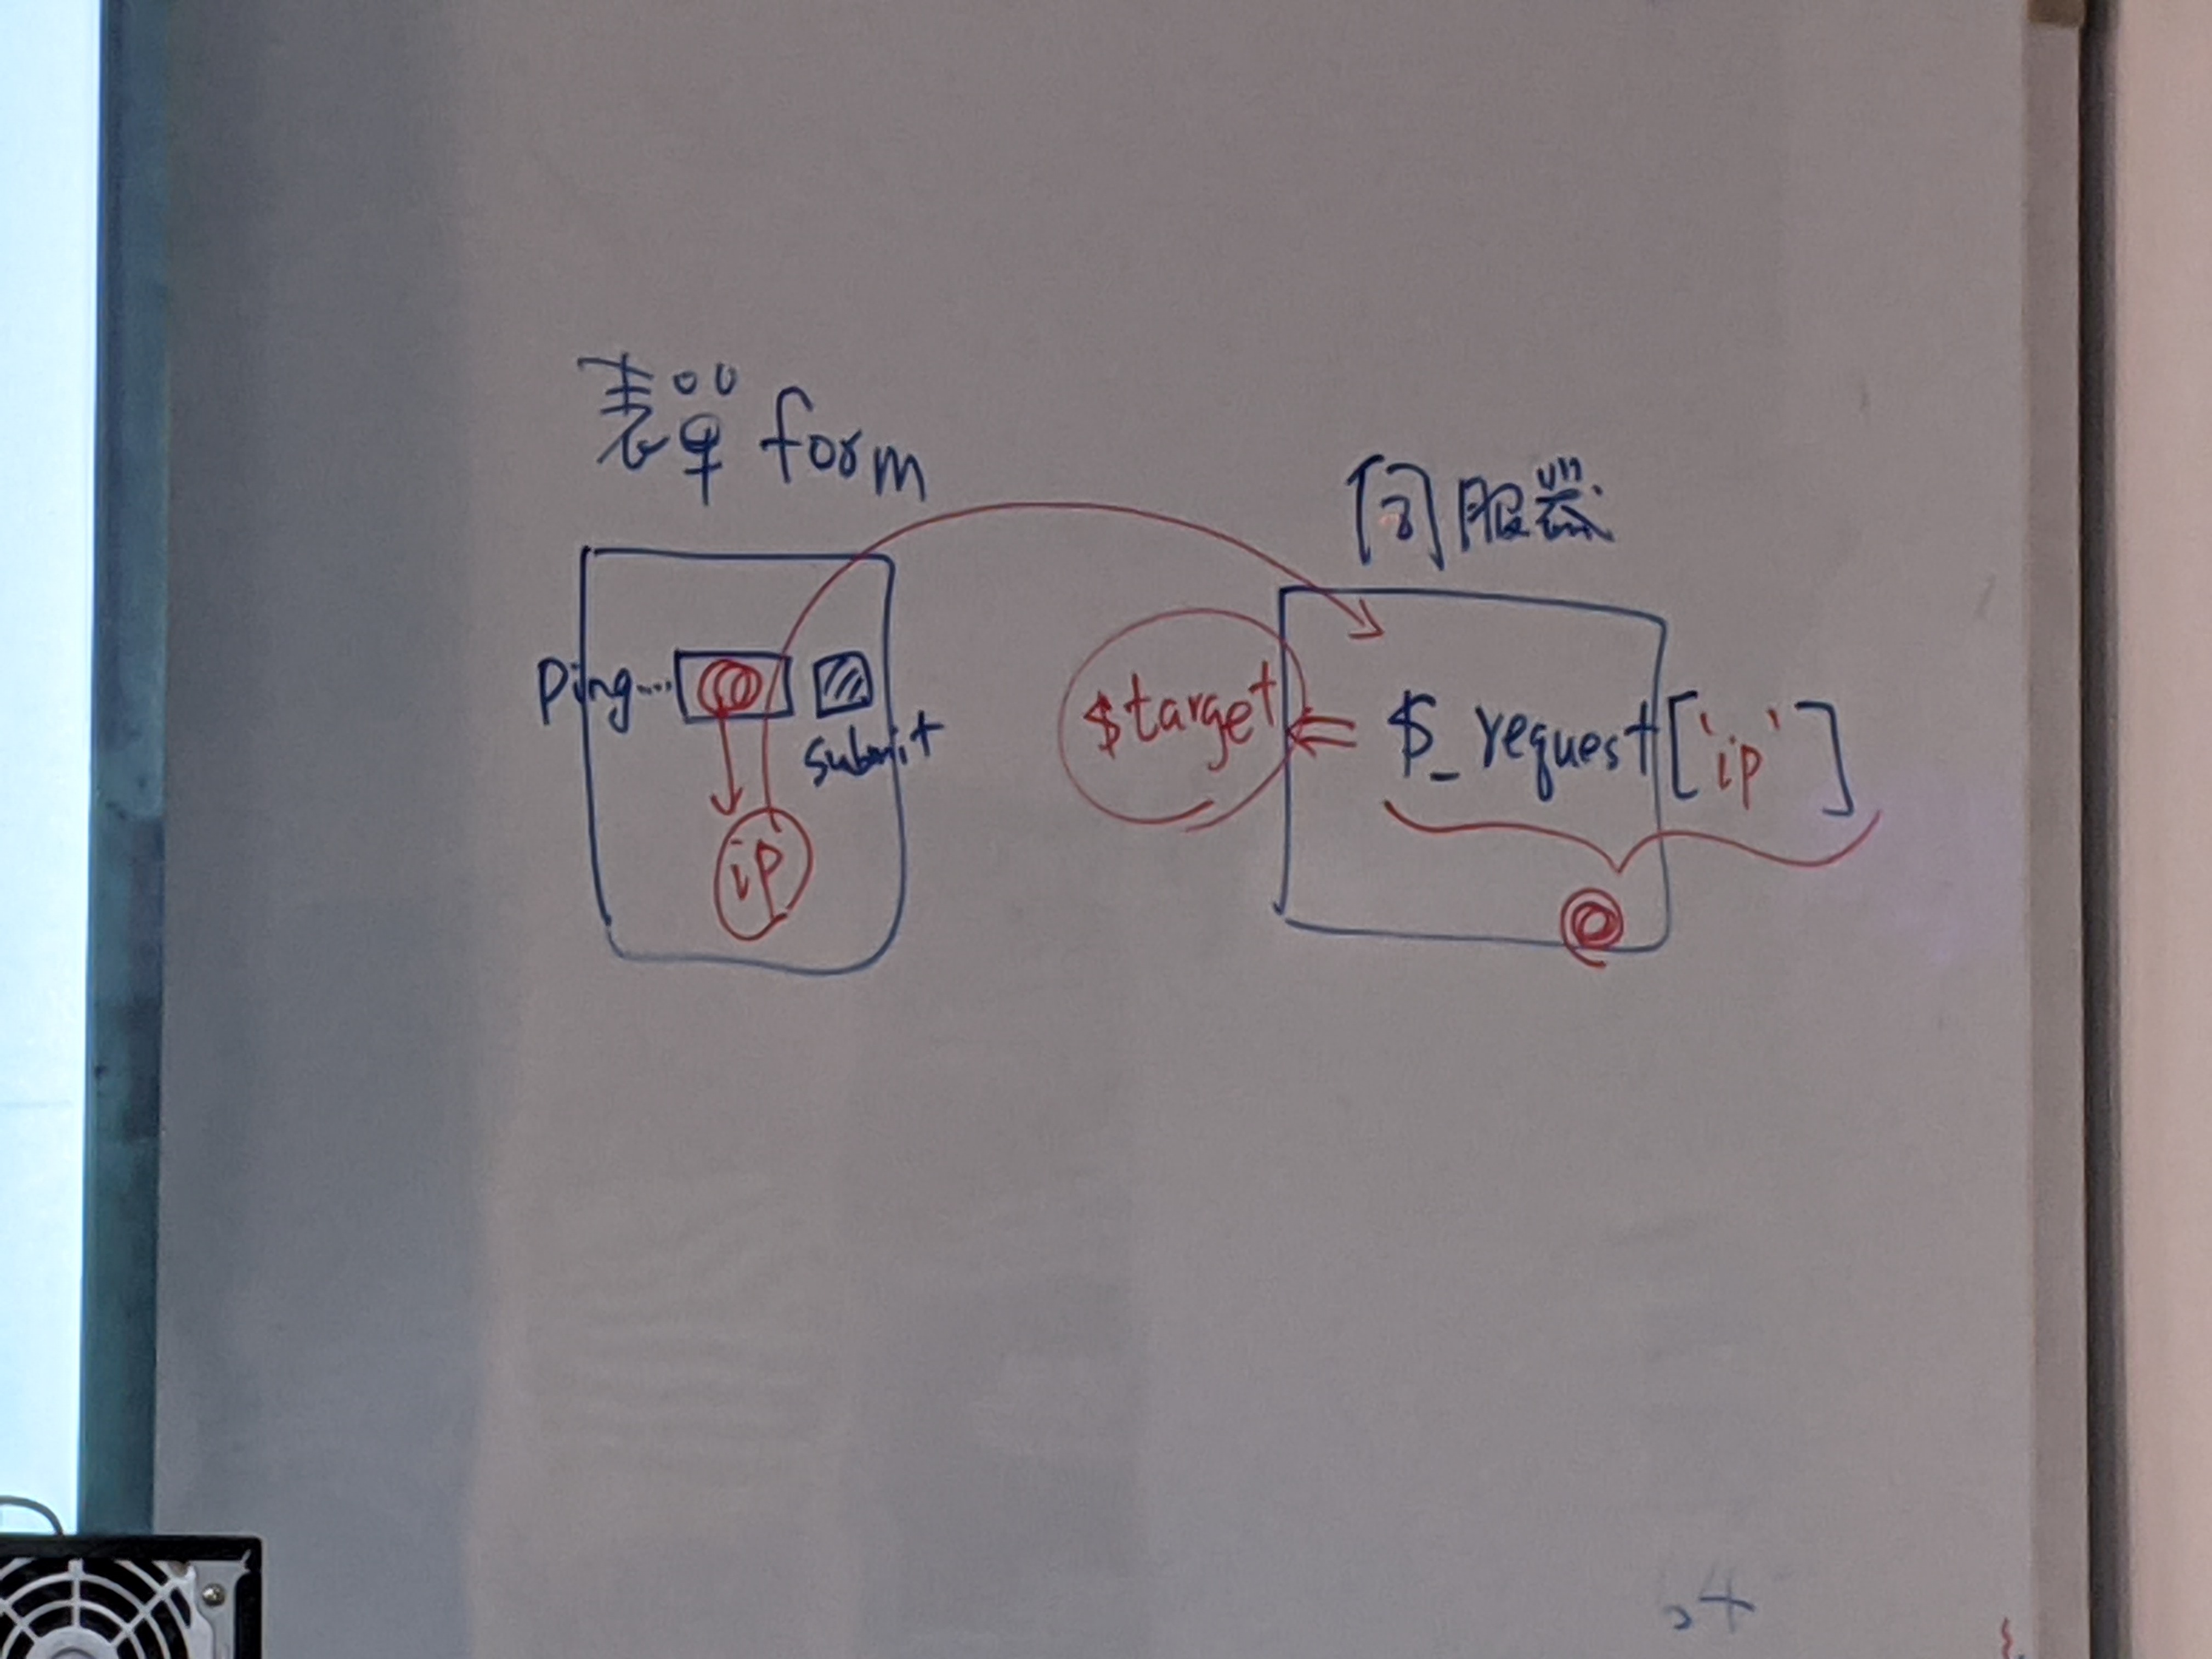 表單 form
伺服器
Ping....
submit
ip
$target
$_request['ip']